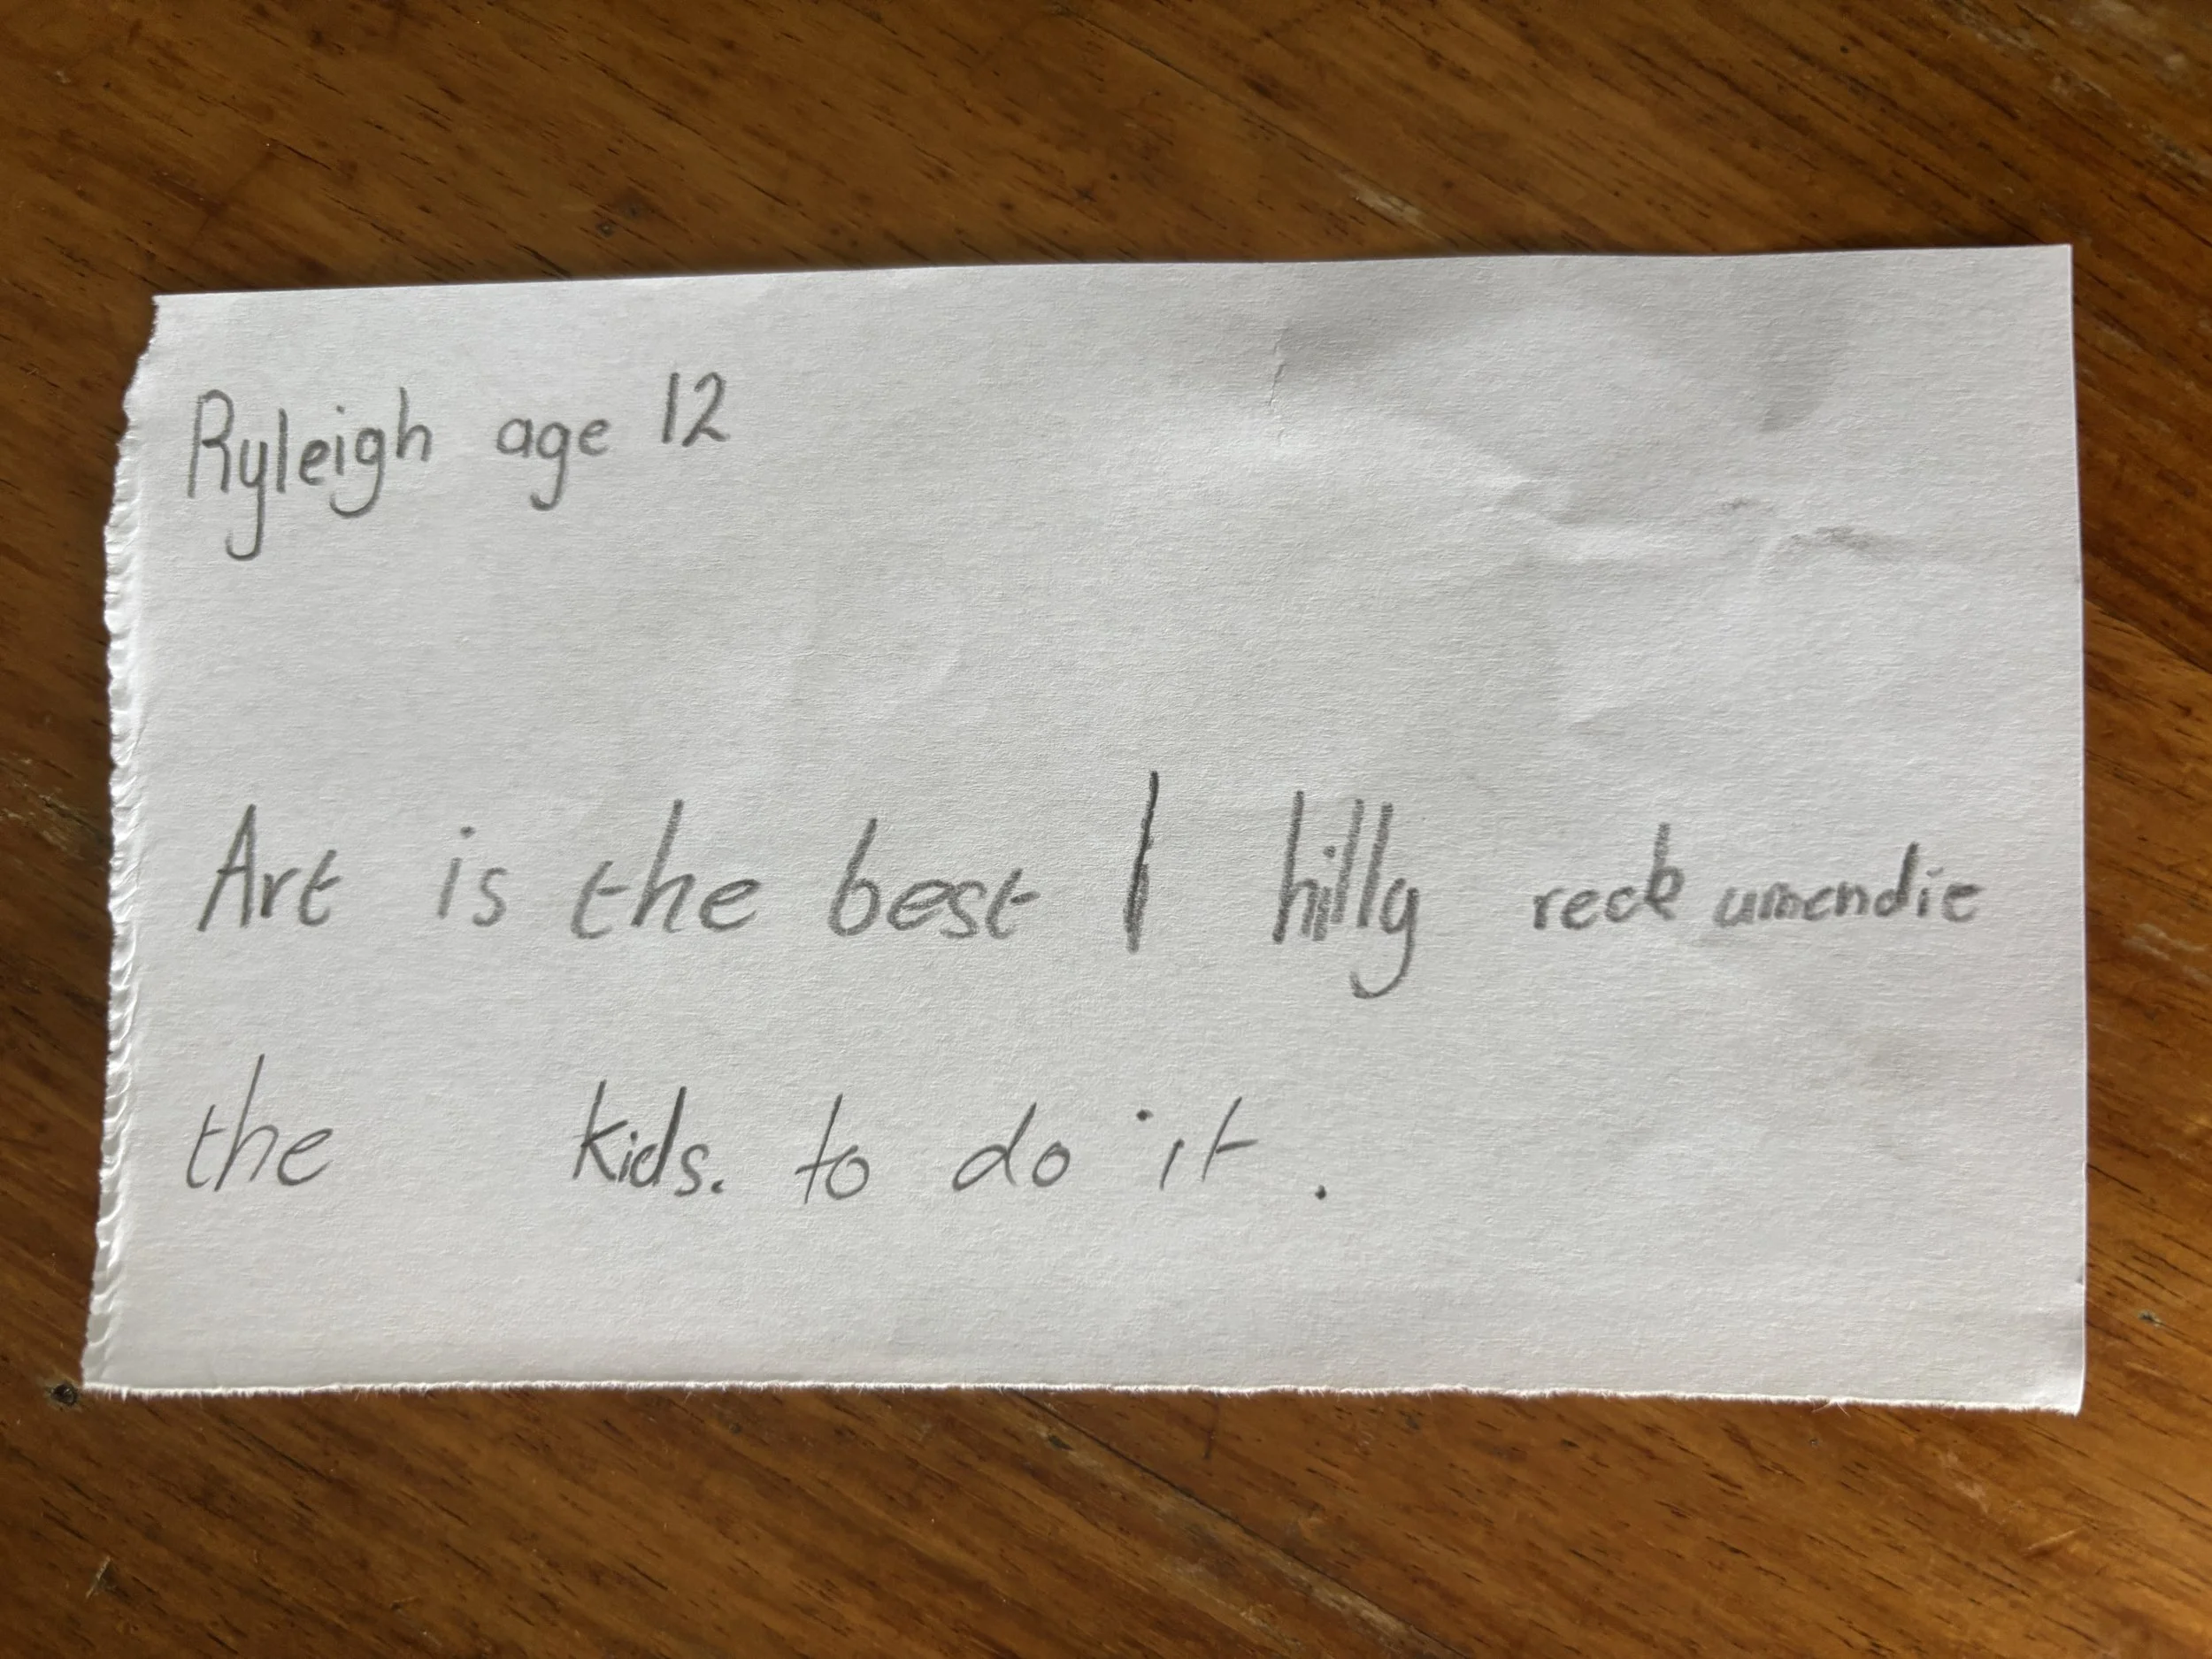 Ryleigh age 12
Art is the best I hilly reck umendie
the kids. to do it.